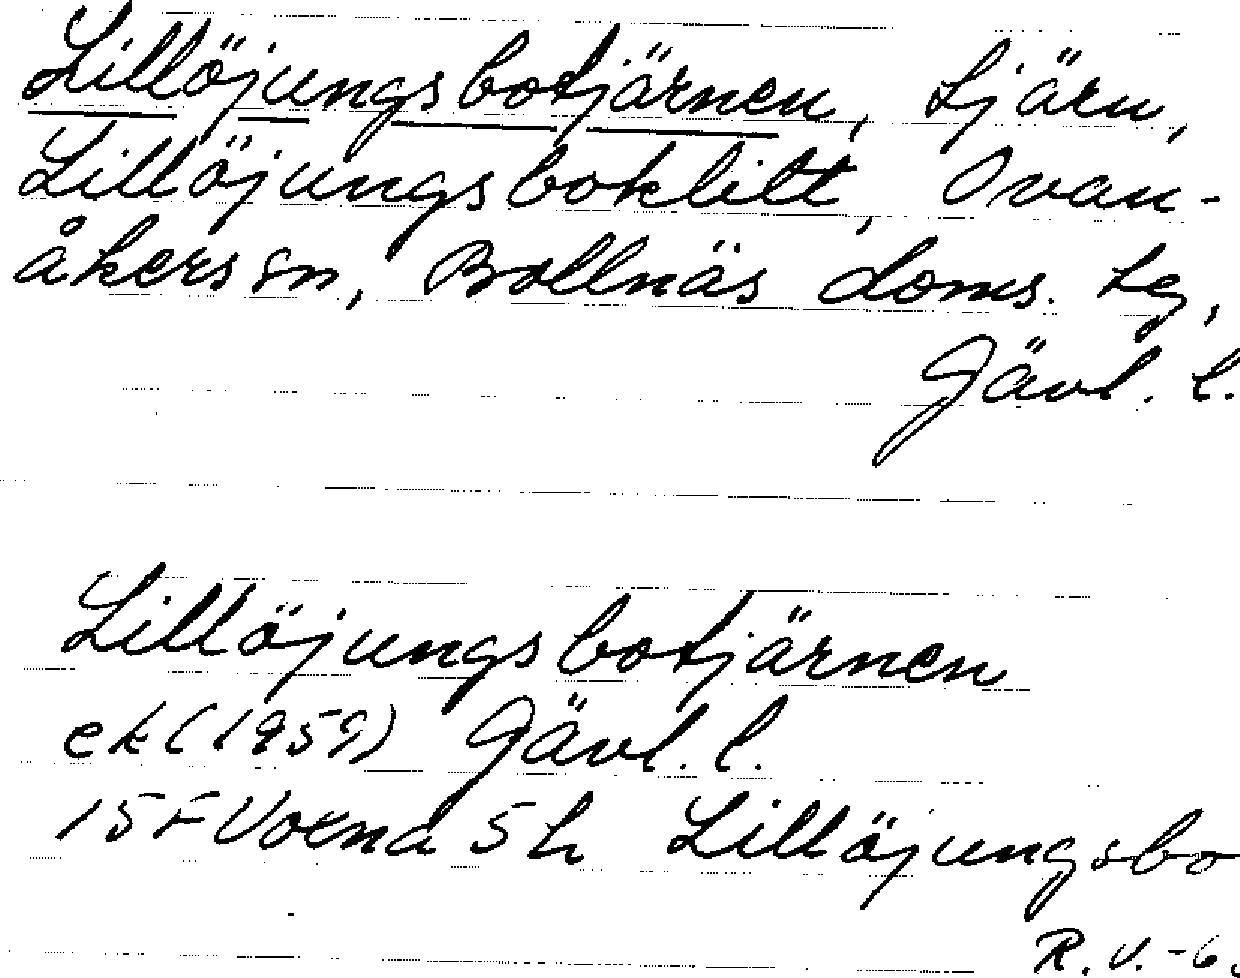 Lillöjungsbotjärnen, tjärn,
Lillöjungsboklitt, Ovan-
åkers sn, Bollnäs doms. tg,
Jävl. l.
Lillöjungsbotjärnen
ek (1959) Jävl. l.
15F Voxna 5h Lillöjungsbo
R.V.-6